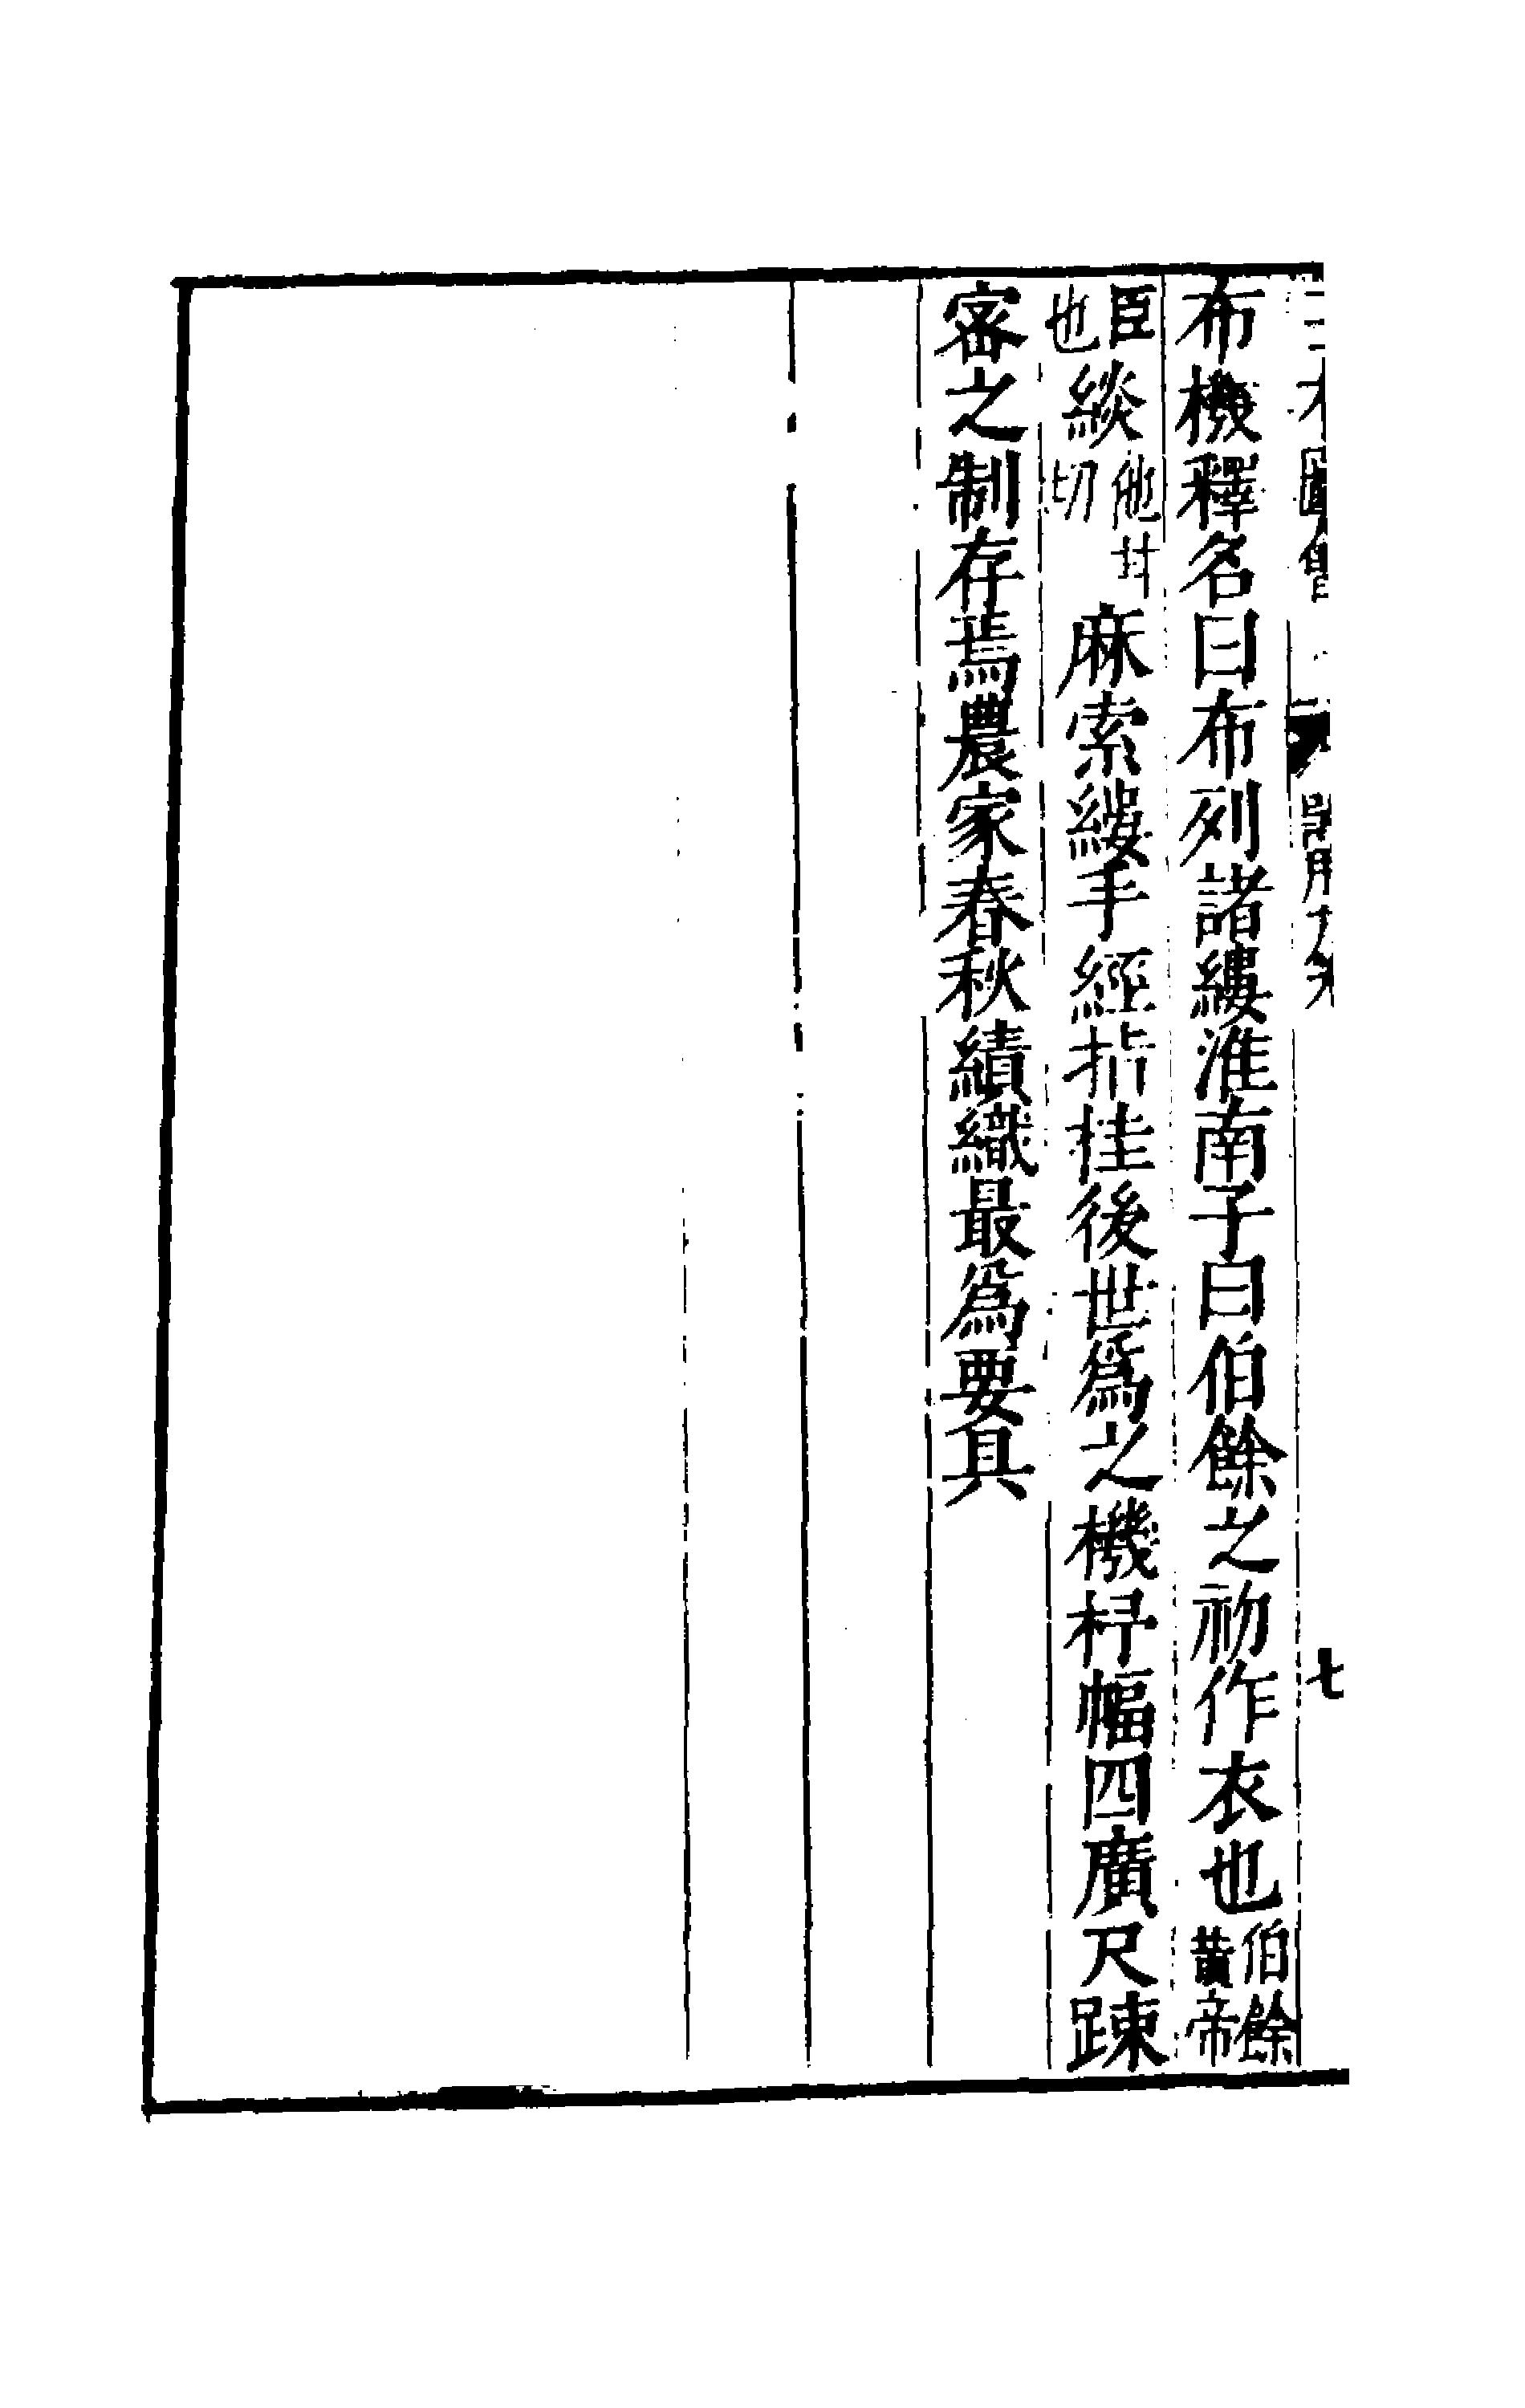 布機釋名曰布列諸縷淮南子曰伯餘之初作衣也伯餘黃帝
臣也緂他甘切麻索縷手經指挂後世爲之機杼幅四廣尺踈
密之制存焉農家春秋績織最爲要具
七